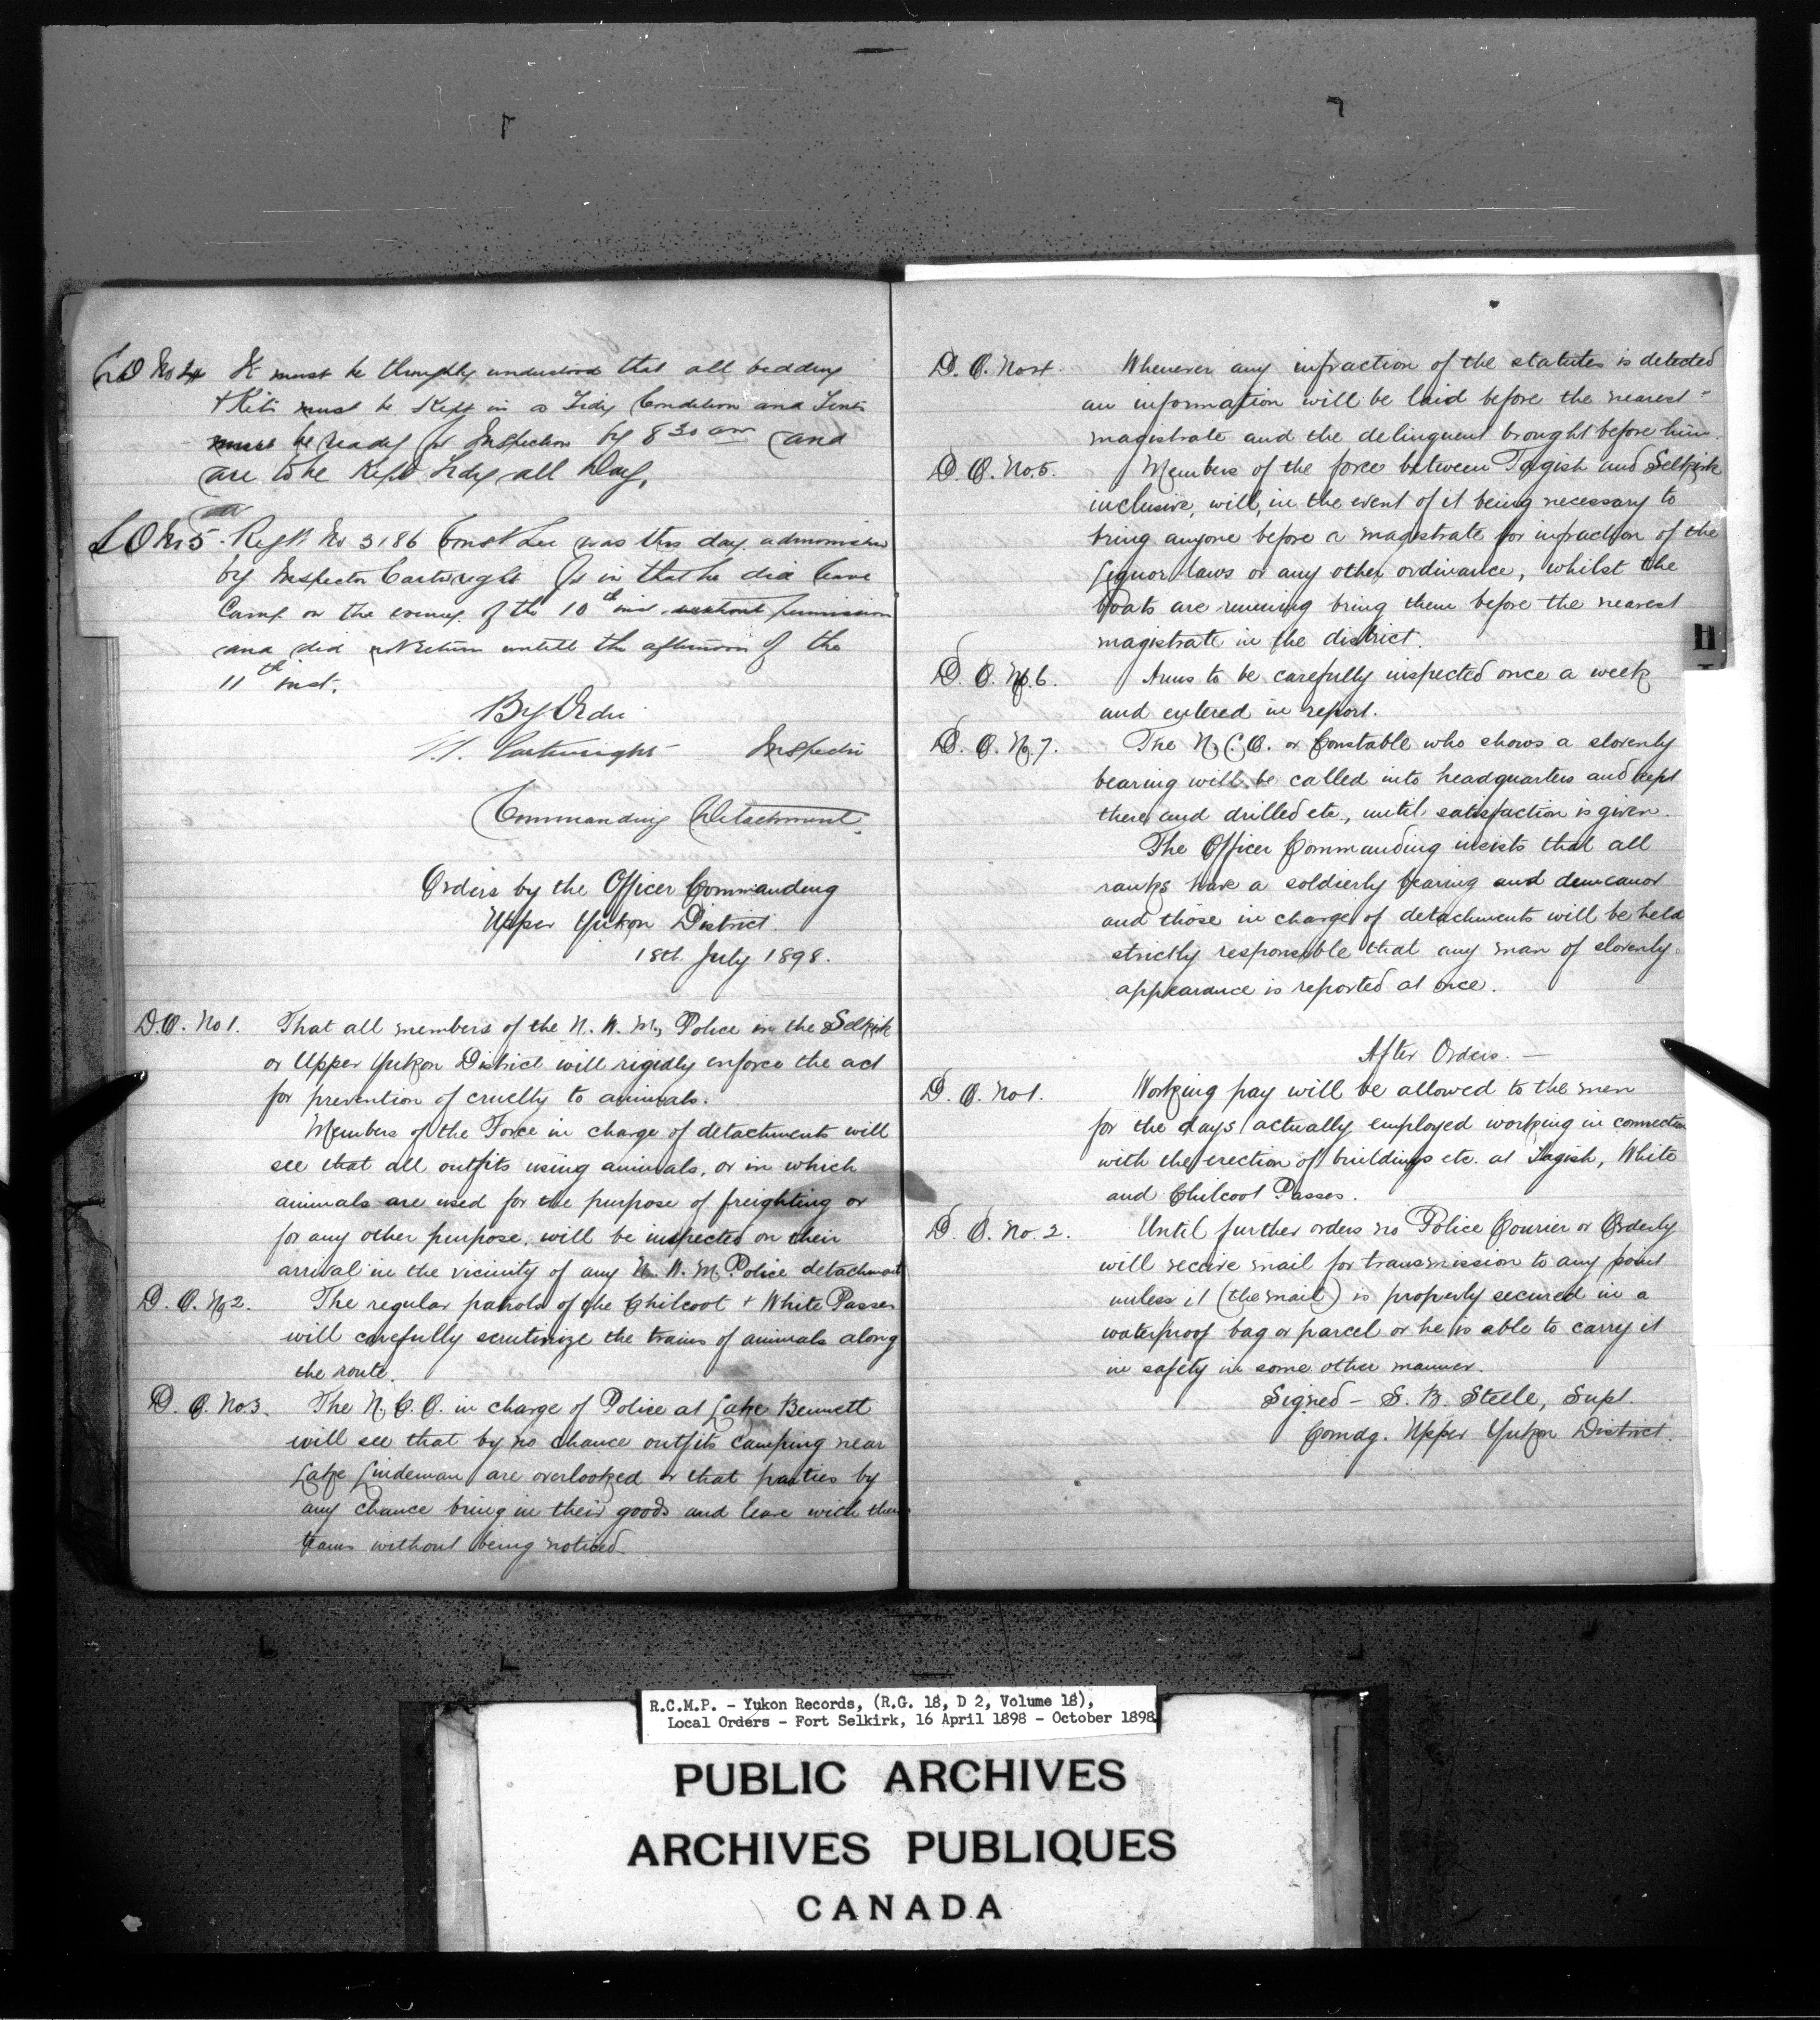 L O No 4 It must be thoroughly understood that all bedding
& Kits must be Kept in a Tidy Condition and Tents
must be ready for Inspection by 8 30 am and
are to be Kept Tidy all Day.
L O No 5 Regt. No 3186 Const Lee was this day admonished
by Inspector Cartwright for in that he did leave
Camp on the evening of the 10th inst without permission
and did not return untill the afternoon of the
11th inst.
By Order
Cartwright Inspector
Commanding Detachment.
Orders by the Officer Commanding
Upper Yukon District.
18th July 1898.
D.O. No 1. That all members of the N. W. M. Police in the Selkirk
or Upper Yukon District will rigidly enforce the act
for prevention of cruelty to animals.
Members of the Force in charge of detachments will
see that all outfits using animals, or in which
animals are used for the purpose of freighting or
for any other purpose, will be inspected on their
arrival in the vicinity of any N. W. M. Police detachment
D. O. No 2. The regular patrols of the Chilcoot & White Passes
will carefully scrutinize the trains of animals along
the route.
D. O. No. 3. The N. C. O. in charge of Police at Lake Bennett
will see that by no chance outfits camping near
Lake Lindeman are overlooked or that parties by
any chance bring in their goods and leave with their
teams without being noticed.
D. O. No 4. Whenever any infraction of the statutes is detected
an information will be laid before the nearest
magistrate and the delinquent brought before him.
D. O. No. 5. Members of the force between Tagish and Selkirk
inclusive, will, in the event of it being necessary to
bring anyone before a magistrate for infraction of the
liquor laws or any other ordinance, whilst the
boats are running bring them before the nearest
magistrate in the district.
D. O. No. 6. Arms to be carefully inspected once a week
and entered in report.
D. O. No. 7. The N. C. O. or Constable who shows a slovenly
bearing will be called into headquarters and kept
there and drilled etc., until satisfaction is given.
The Officer Commanding insists that all
ranks have a soldierly bearing and demeanor
and those in charge of detachments will be held
strictly responsible that any man of slovenly
appearance is reported at once.
After Orders. —
D. O. No 1. Working pay will be allowed to the men
for the days actually employed working in connection
with the erection of buildings etc. at Tagish, White
and Chilcoot Passes.
D. O. No. 2. Until further orders no Police Courier or Orderly
will receive mail for transmission to any point
unless it (the mail) is properly secured in a
waterproof bag or parcel or he is able to carry it
in safety in some other manner.
Signed - S. B. Steele, Supt.
Comdg. Upper Yukon District.
H
R.C.M.P. - Yukon Records, (R.G. 18, D 2, Volume 18),
Local Orders - Fort Selkirk, 16 April 1898 - October 1898
PUBLIC ARCHIVES
ARCHIVES PUBLIQUES
CANADA